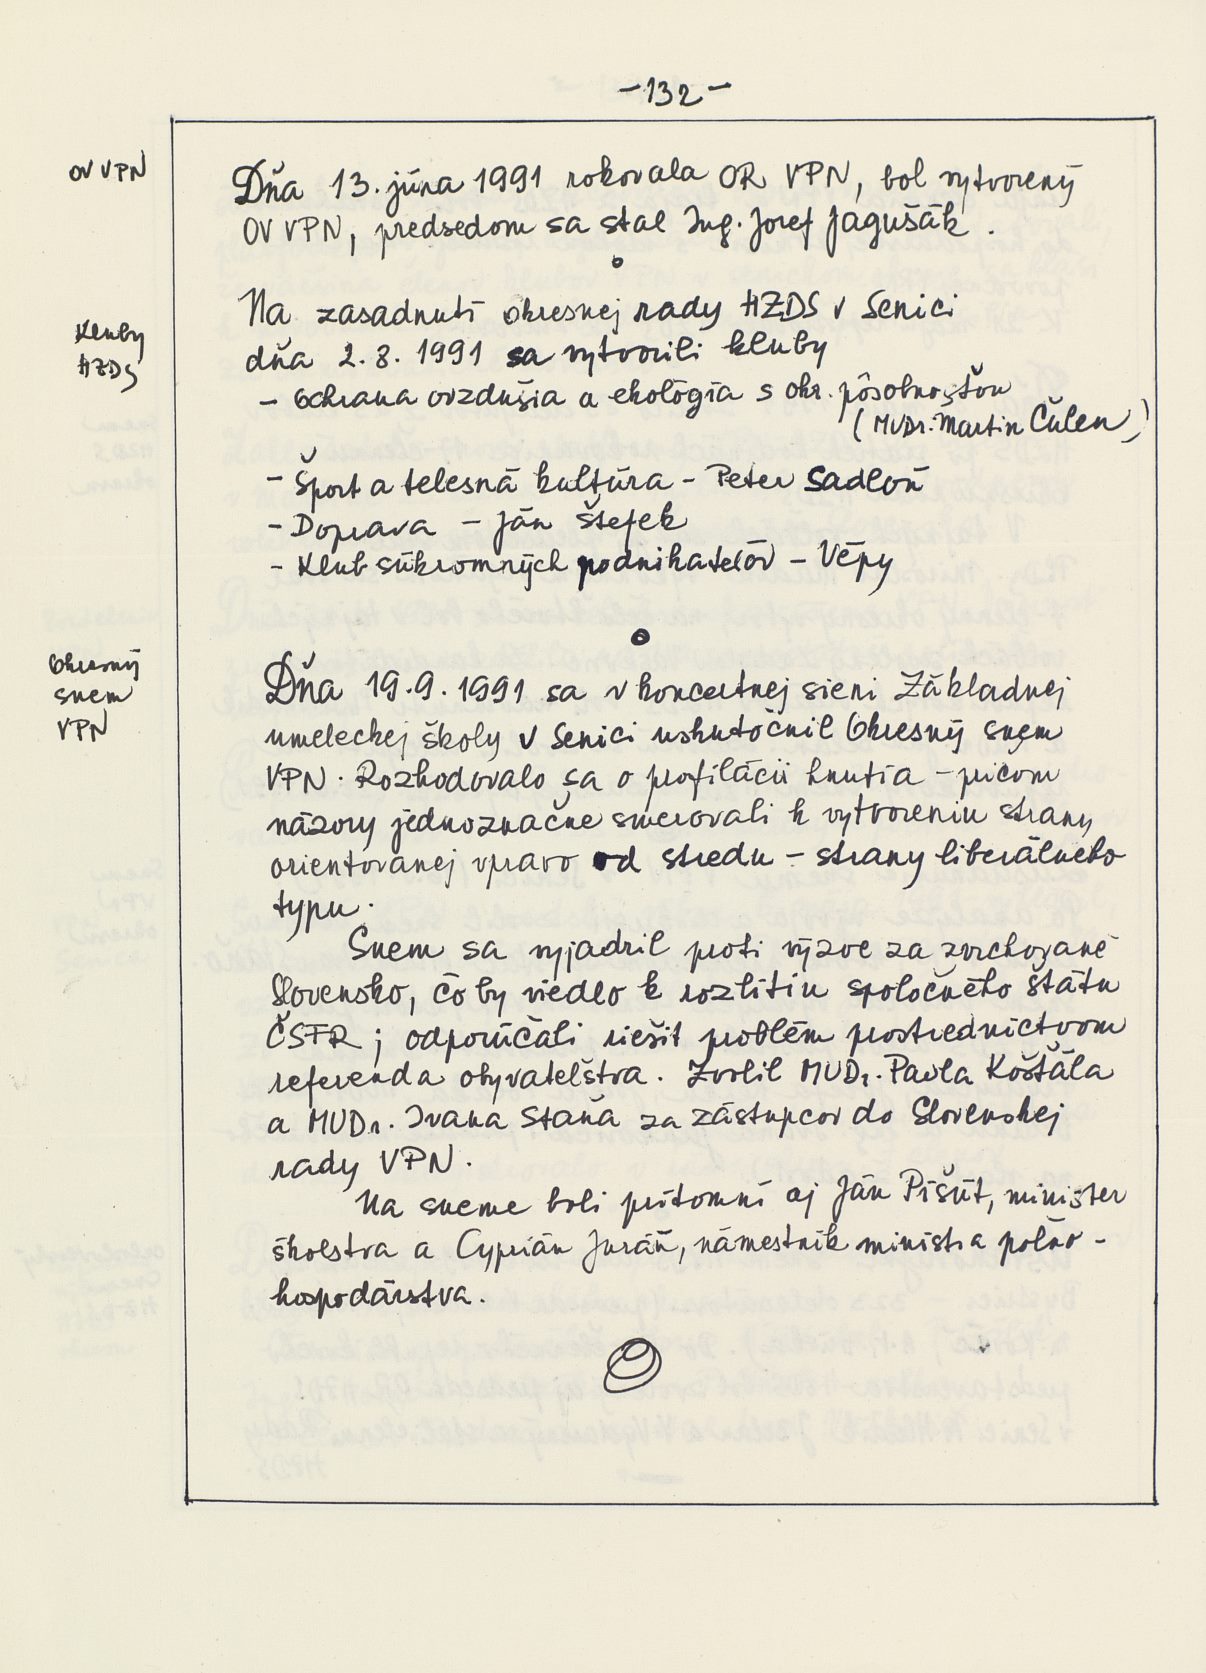 -132-
OV VPN
Dňa 13. júna 1991 rokovala OR VPN, bol vytvorený
OV VPN, predsedom sa stal Ing. Jozef Jagušák.
Kluby
HZDS
Na zasadnutí okresnej rady HZDS v Senici
dňa 2.8.1991 sa vytvorili kluby
- Ochrana ovzdušia a ekológia s okr. pôsobnosťou
(MVDr. Martin Čulen)
- Šport a telesná kultúra - Peter Sadloň
- Doprava - Ján Štefek
- Klub súkromných podnikateľov - Vépy
Okresný
snem
VPN
Dňa 19.9.1991 sa v koncertnej sieni Základnej
umeleckej školy v Senici uskutočnil Okresný snem
VPN. Rozhodovalo sa o profilácii hnutia - pričom
názory jednoznačne smerovali k vytvoreniu strany
orientovanej vpravo od stredu - strany liberálneho
typu.
Snem sa vyjadril proti výzve za zvrchované
Slovensko, čo by viedlo k rozbitiu spoločného štátu
ČSFR; odporúčali riešiť problém prostredníctvom
referenda obyvateľstva. Zvolil MUDr. Pavla Košťála
a MUDr. Ivana Staňa za zástupcov do Slovenskej
rady VPN.
Na sneme boli prítomní aj Ján Pišút, minister
školstva a Cyprián Juráň, námestník ministra poľno-
hospodárstva.